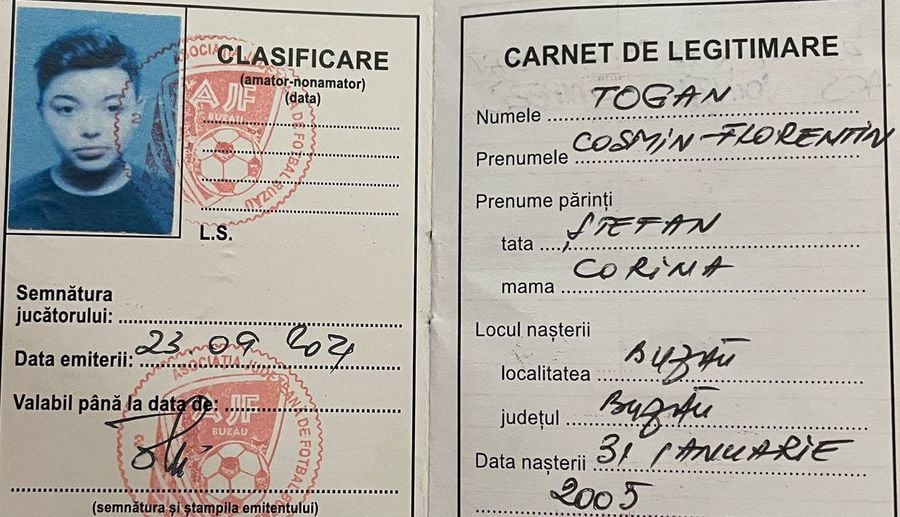 CLASIFICARE
(amator-nonamator)
(data)
ASOCIAȚIA JUDEȚEANĂ DE FOTBAL BUZĂU
AJF
BUZAU
L.S.
Semnătura
jucătorului:
Data emiterii: 23.09 2021
Valabil până la data de:
ASOCIAȚIA JUDEȚEANĂ DE FOTBAL BUZĂU
AJF
BUZAU
(semnătura și ștampila emitentului)
CARNET DE LEGITIMARE
Numele TOGAN
Prenumele COSMIN-FLORENTIN
Prenume părinți
tata ȘTEFAN
mama CORINA
Locul nașterii
localitatea BUZĂU
județul BUZĂU
Data nașterii 31 IANUARIE
2005